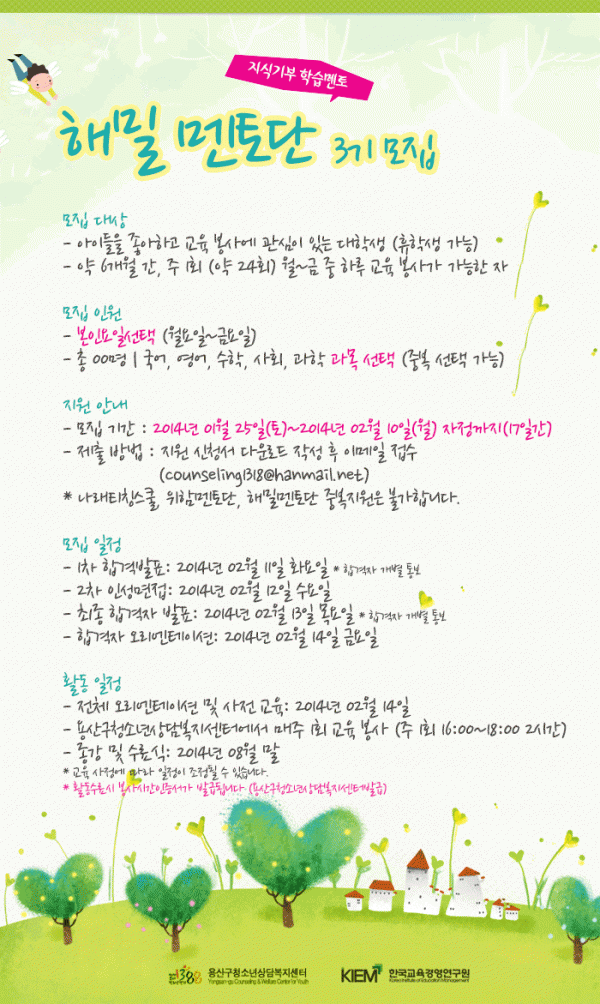 지식기부 학습멘토
해밀 멘토단 3기 모집
모집 대상
- 아이들을 좋아하고 교육 봉사에 관심이 있는 대학생 (휴학생 가능)
- 약 6개월 간, 주 1회 (약 24회) 월~금 중 하루 교육 봉사가 가능한 자
모집 인원
- 본인요일선택 (월요일~금요일)
- 총 00명 | 국어, 영어, 수학, 사회, 과학 과목 선택 (중복 선택 가능)
지원 안내
- 모집 기간 : 2014년 01월 25일(토)~2014년 02월 10일(월) 자정까지(17일간)
- 제출 방법 : 지원 신청서 다운로드 작성 후 이메일 접수
(counseling1318@hanmail.net)
* 나래티칭스쿨, 위함멘토단, 해밀멘토단 중복지원은 불가합니다.
모집 일정
- 1차 합격발표: 2014년 02월 11일 화요일 * 합격자 개별 통보
- 2차 인성면접: 2014년 02월 12일 수요일
- 최종 합격자 발표: 2014년 02월 13일 목요일 * 합격자 개별 통보
- 합격자 오리엔테이션: 2014년 02월 14일 금요일
활동 일정
- 전체 오리엔테이션 및 사전 교육: 2014년 02월 14일
- 용산구청소년상담복지센터에서 매주 1회 교육 봉사 (주 1회 16:00~18:00 2시간)
- 종강 및 수료식: 2014년 08월 말
* 교육 사정에 따라 일정이 조정될 수 있습니다.
* 활동수료시 봉사시간인증서가 발급됩니다 (용산구청소년상담복지센터발급)
1388 용산구청소년상담복지센터
Yongsan-gu Counseling & Welfare Center for Youth
KIEM 한국교육경영연구원
Korea Institute of Education Management